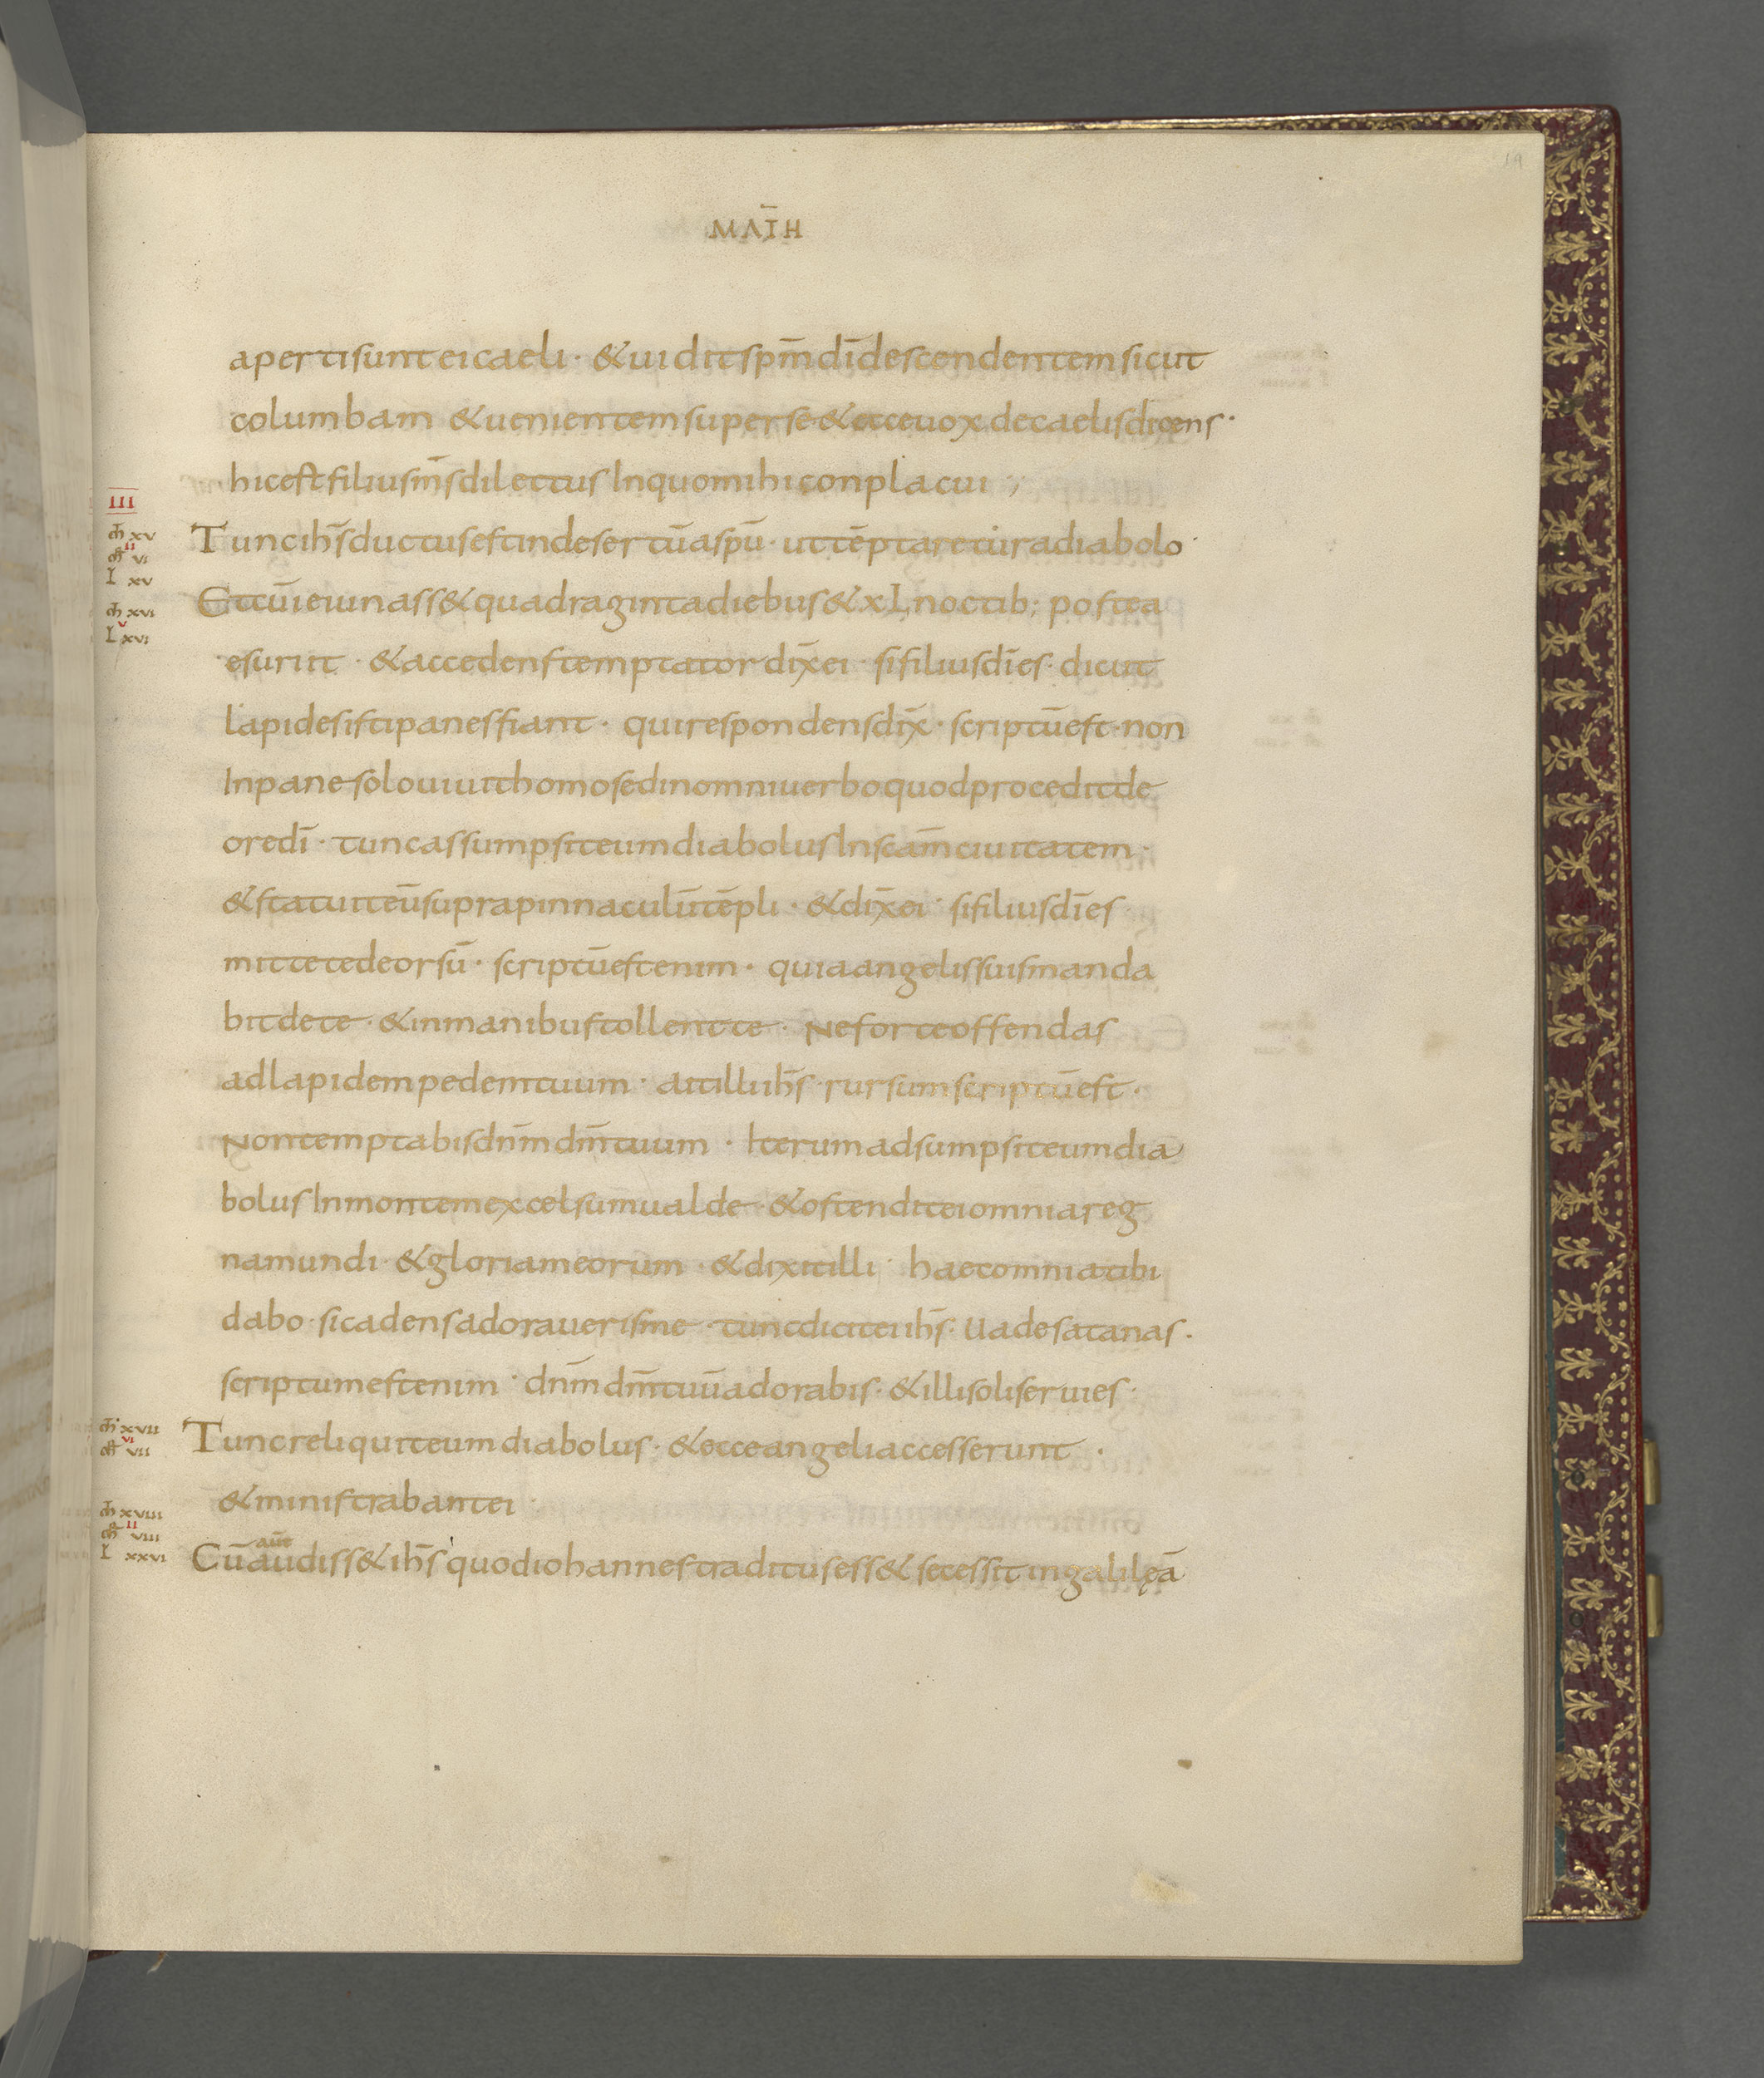 19
MAT̄H
apertisunteicaeli · &uiditsp̄mdīdescendentemsicut
columbam &uenientemsuperse·&eccevoxdecaelisdicens·
hicestfiliusm̄sdilectusInquomihiconplacui
III
Tuncih̄sductusestindesertūaspū· uttēptaretūradiabolo·
m̄h xv
m̄r II vi
L xv
Etcūieiunass&quadragintadiebus&xLnoctib; postea
m̄h xvi
L v xvi
esuriit · &accedenstemptatordix̄ei · sifiliusdīes· dicut
lapidesistipanesfiant · quirespondensdix̄· scriptūest·non
Inpanesolouiuithomosedinomniuerboquodproceditde
oredī · tuncassumpsiteumdiabolusInscām̄ciuitatem·
&statuiteūsuprapinnaculūtēpli · &dix̄ei · sifiliusdīes
mittetedeorsū · scriptūestenim · quiaangelissuismanda
bitdete · &inmanibustollentte · Neforteoffendas
adlapidempedemtuum · aitilliih̄s rursumscriptūest ·
Nontemptabisdn̄mdm̄tuum · Iterumadsumpsiteumdia
bolusInmontemexcelsumualde · &ostenditeiomniareg
namundi · &gloriameorum · &dixitilli · haecomniatibi
dabo sicadensadoraverisme · tuncdiciteiih̄s· Uadesatanas·
scriptumestenim · dn̄mdm̄tuūadorabis· &illisoliseruies·
m̄h xvii
m̄r VI vii
Tuncreliquiteumdiabolus· &ecceangeliaccesserunt ·
&ministrabantei
m̄h xviii
m̄r II viii
L xxvi
aūt
Cūaudiss&ih̄s quodiohannestraditusess&secessitingalileā